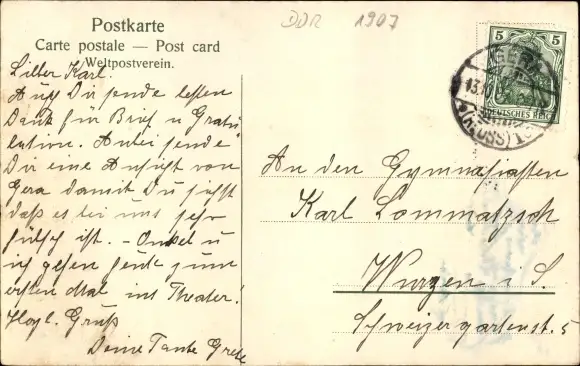 DDR 1907
Postkarte
Carte postale — Post card
Weltpostverein.
5 5
DEUTSCHES REICH
GERA
13.10
(REUSS)
Lieber Karl.
Auch Dir sende besten
Dank für Brief u Gratu
lation. Anbei sende
Dir eine Ansicht von
Gera damit Du siehst
daß es bei uns sehr
hübsch ist. – Onkel u
ich gehen heute zum
ersten Mal ins Theater!
Herzl. Gruß
Deine Tante Grete
An den Gymnasiasten
Karl Lommatzsch
Wurzen i. S.
Schweizergartenstr. 5